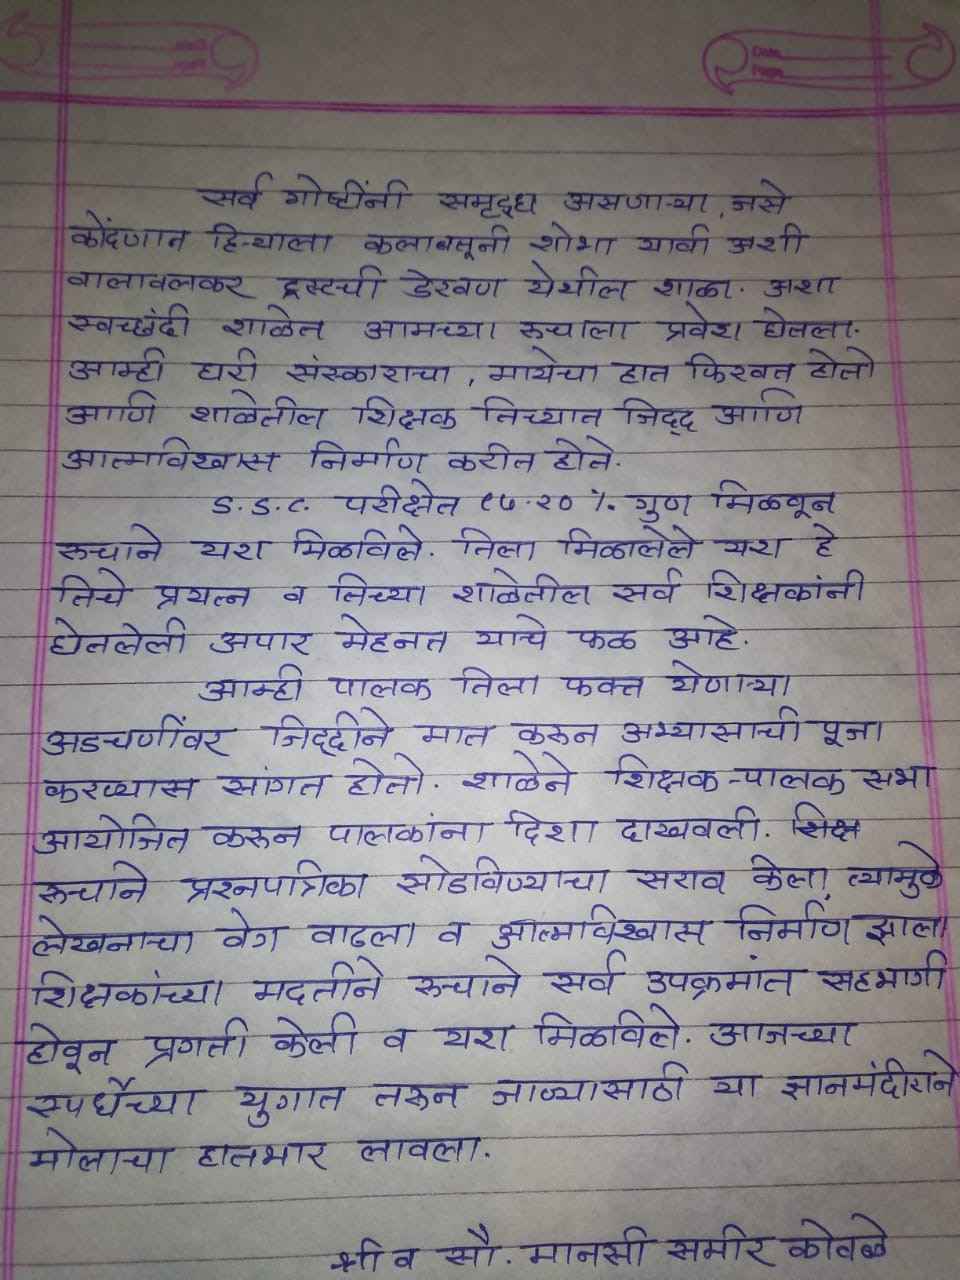 सर्व गोष्टींनी समृद्ध असणाऱ्या, जसे
कोंदणात हिऱ्याला कलाबतूनी शोभा यावी अशी
वालावलकर ट्रस्टची डेरवण येथील शाळा. अशा
स्वच्छंदी शाळेत आमच्या ऋचाला प्रवेश घेतला.
आम्ही घरी संस्काराचा, मायेचा हात फिरवत होतो
आणि शाळेतील शिक्षक तिच्यात जिद्द आणि
आत्मविश्वास निर्माण करीत होते.
S.S.C. परीक्षेत ९५.२०% गुण मिळवून
ऋचाने यश मिळविले. तिला मिळालेले यश हे
तिचे प्रयत्न व तिच्या शाळेतील सर्व शिक्षकांनी
घेतलेली अपार मेहनत याचे फळ आहे.
आम्ही पालक तिला फक्त येणाऱ्या
अडचणींवर जिद्दीने मात करून अभ्यासाची पूजा
करण्यास सांगत होतो. शाळेने शिक्षक-पालक सभा
आयोजित करून पालकांना दिशा दाखवली.
ऋचाने प्रश्नपत्रिका सोडविण्याचा सराव केला, त्यामुळे
लेखनाचा वेग वाढला व आत्मविश्वास निर्माण झाला
शिक्षकांच्या मदतीने ऋचाने सर्व उपक्रमांत सहभागी
होवून प्रगती केली व यश मिळविले. आजच्या
स्पर्धेच्या युगात तरून जाण्यासाठी या ज्ञानमंदीराने
मोलाचा हातभार लावला.
श्री व सौ. मानसी समीर कोवळे